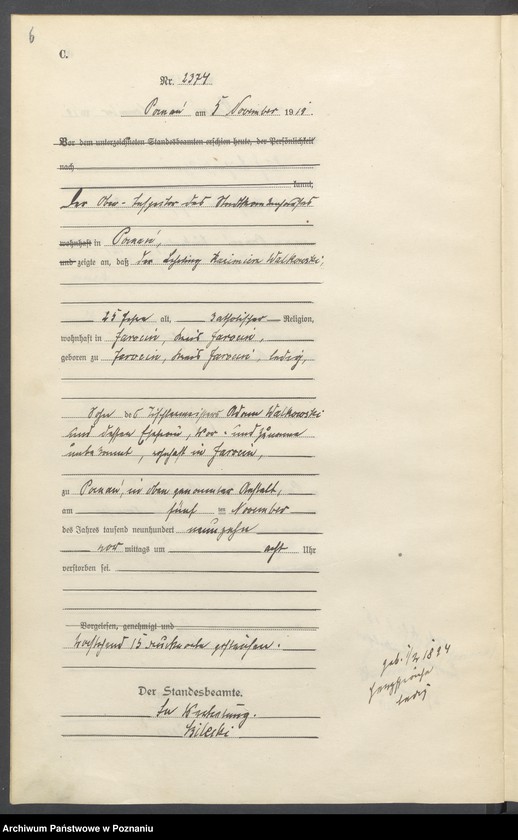 6
C.
Nr. 2374
Poznań am 5 November 1919.
Vor dem unterzeichneten Standesbeamten erschien heute, der Persönlichkeit
nach
kannt,
Der Ober-Inspektor des Stadtkrankenhauses
wohnhaft in Poznań,
und zeigte an, daß der Lehrling Kazimierz Walkowski,
25 Jahre alt, katholischer Religion,
wohnhaft in Jarocin, Kreis Jarocin,
geboren zu Jarocin, Kreis Jarocin, ledig,
Sohn des Tischlermeisters Adam Walkowski
und dessen Ehefrau, Vor- und Zuname
unbekannt, wohnhaft in Jarocin,
zu Poznań, in oben genannter Anstalt,
am fünf ten November
des Jahres tausend neunhundert neunzehn
vor mittags um acht Uhr
verstorben sei.
Vorgelesen, genehmigt und
Vorstehend 15 Druckworte gestrichen.
Der Standesbeamte.
In Vertretung.
geb. 1894
ledig
Archiwum Państwowe w Poznaniu